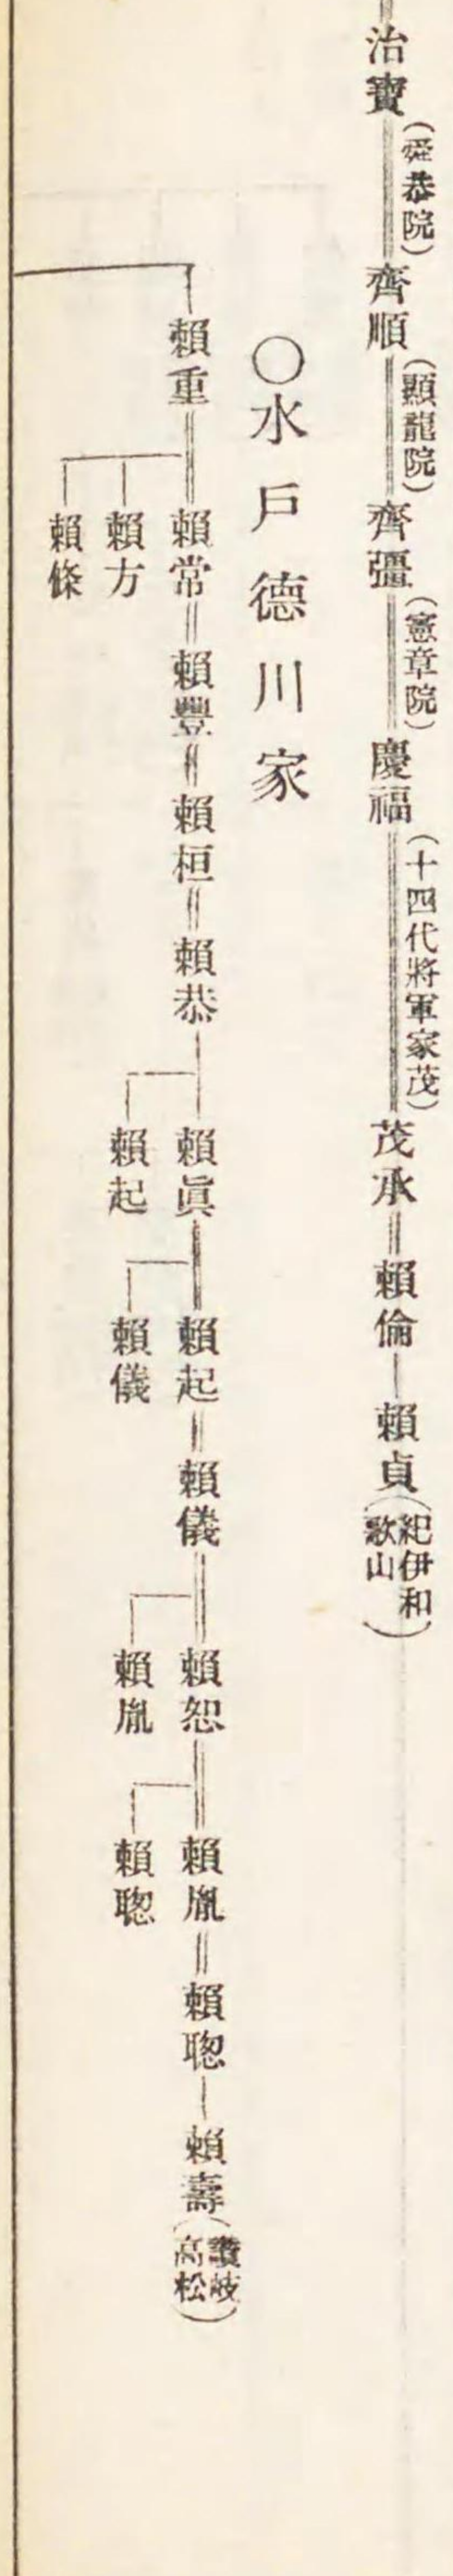 治寶(舜恭院)齊順(顯龍院)齊彊(憲章院)慶福(十四代將軍家茂)茂承 賴倫 賴貞(紀伊和歌山)
〇水戶德川家
賴重 賴常 賴豐 賴桓 賴恭 賴眞 賴起 賴儀 賴恕 賴胤 賴聰 賴壽(讚岐高松)
賴方 賴起 賴儀 賴胤 賴聰
賴條